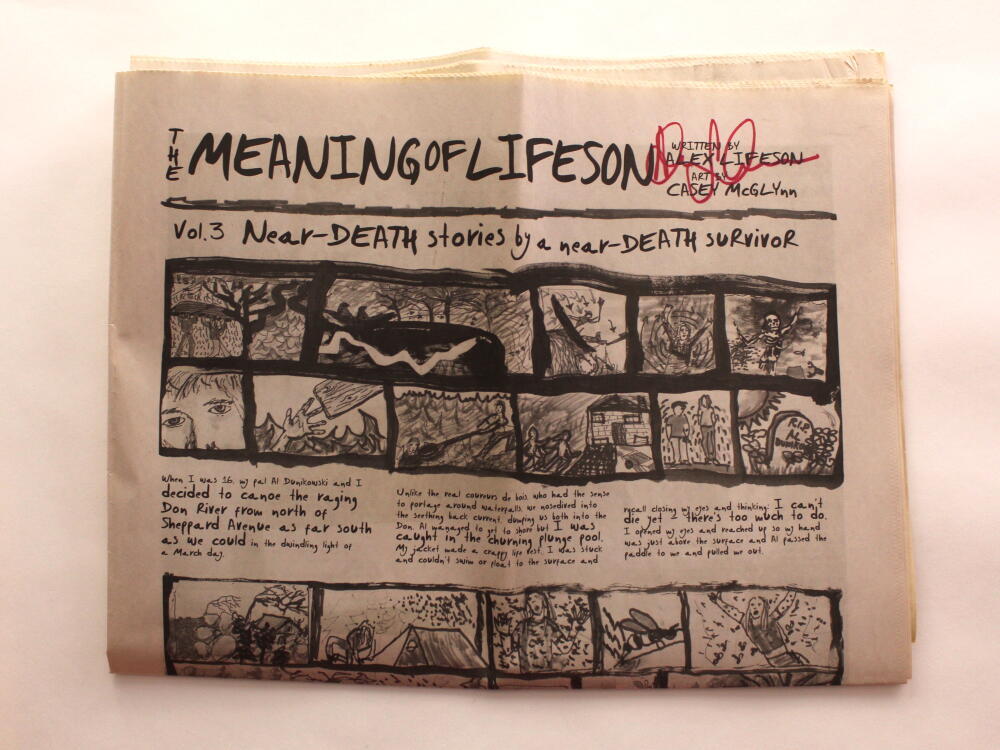 THE MEANING OF LIFESON
WRITTEN BY
ALEX LIFESON
ART BY
CASEY McGLYnn
Vol.3 Near-DEATH stories by a near-DEATH survivoR
R.I.P.
AL
When I was 16, my pal Al Dunikowski and I
decided to canoe the raging
Don River from north of
Sheppard Avenue as far south
as we could in the dwindling light of
a March day.
Unlike the real coureurs de bois, who had the sense
to portage around waterfalls, we nosedived into
the seething back current, dumping us both into the
Don. Al managed to get to shore but I was
caught in the churning plunge pool.
My jacket made a crappy life vest. I was stuck
and couldn't swim or float to the surface and
recall closing my eyes and thinking: I can't
die yet – there's too much to do.
I opened my eyes and reached up so my hand
was just above the surface and Al passed the
paddle to me and pulled me out.